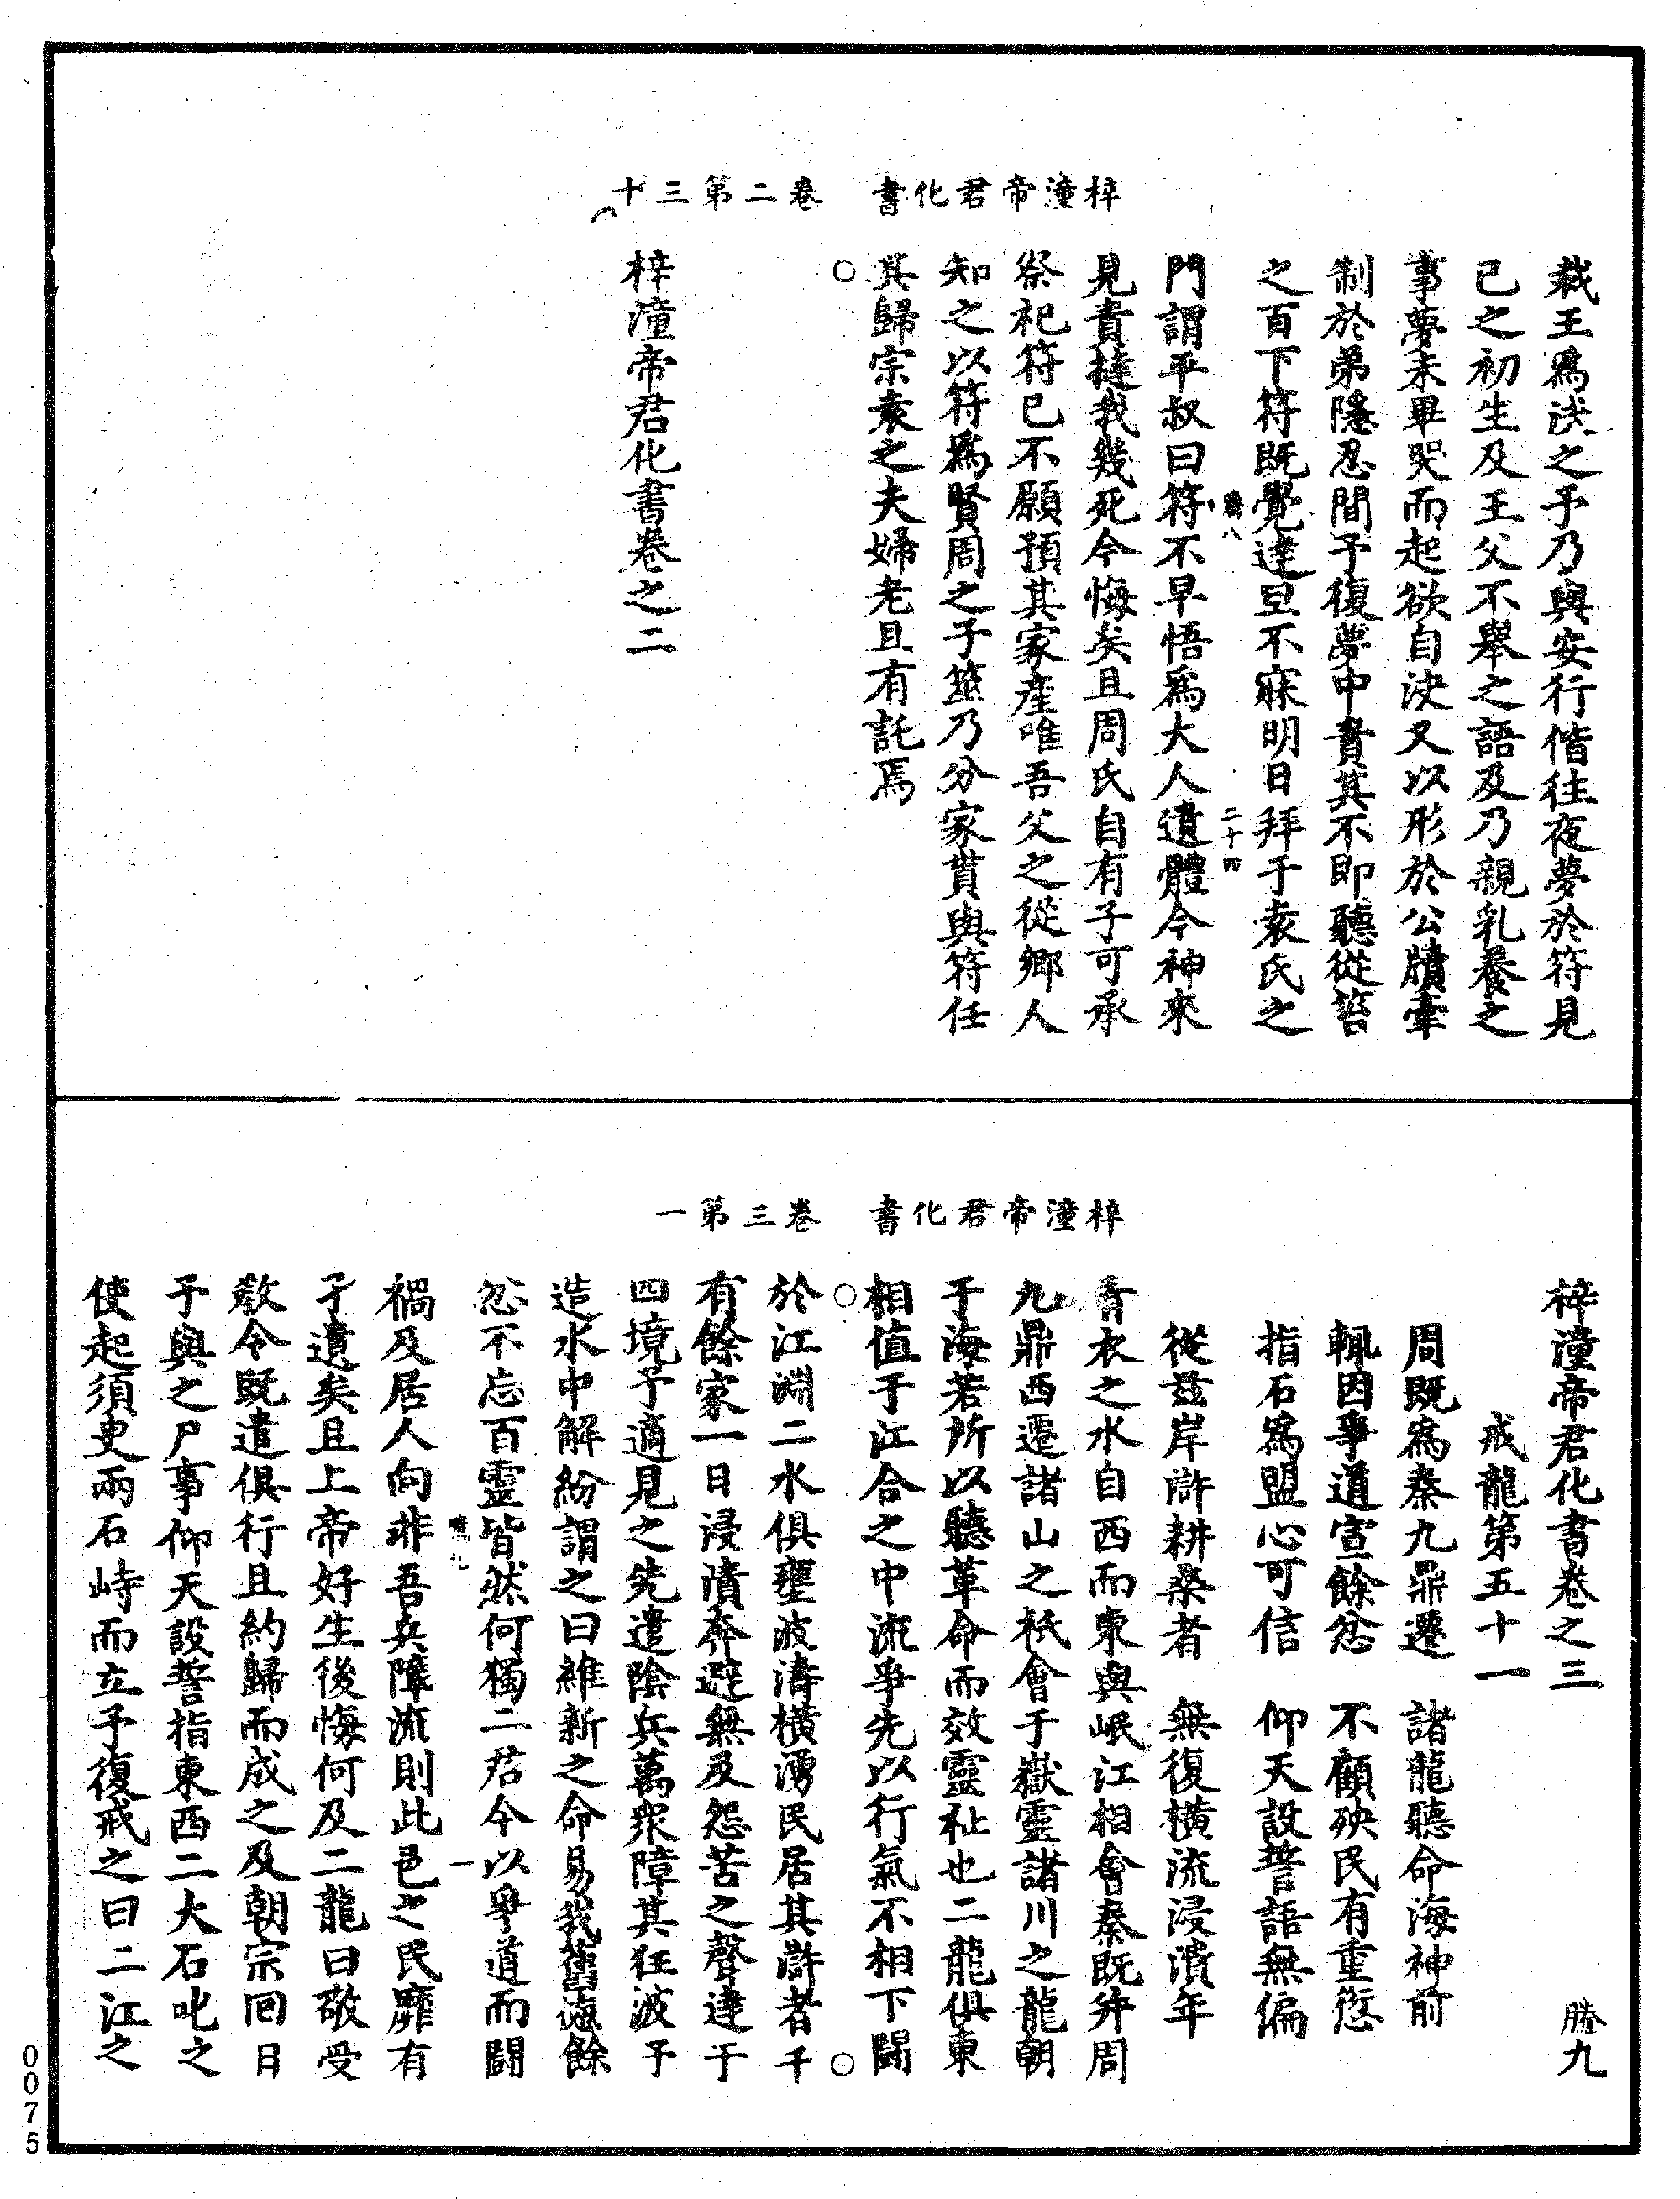 梓潼帝君化書　卷二第三十
裁王爲決之予乃與安行偕往夜夢於符見
己之初生及王父不舉之語及乃親乳養之
事夢未畢哭而起欲自決又以形於公牘牽
制於弟隱忍間予復夢中責其不即聽從笞
之百下符既覺達旦不寐明日拜于袁氏之
八　二十四
門謂平叔曰符不早悟爲大人遺體今神來
見責撻我幾死今悔矣且周氏自有子可承
祭祀符已不願預其家產唯吾父之從鄉人
知之以符爲賢周之子簉乃分家貲與符任
其歸宗袁之夫婦老且有託焉
梓潼帝君化書卷之二
梓潼帝君化書　卷三第一
梓潼帝君化書卷之三　騰九
戒龍第五十一
周既爲秦九鼎遷　諸龍聽命海神前
輒因爭道宣餘忿　不顧殃民有重愆
指石爲盟心可信　仰天設誓語無偏
從兹岸滸耕桑者　無復橫流浸潰年
青衣之水自西而東與岷江相會秦既并周
九鼎西遷諸山之祇會于嶽靈諸川之龍朝
于海若所以聽革命而效靈祉也二龍俱東
相值于江合之中流爭先以行氣不相下鬪
於江淵二水俱壅波濤橫湧民居其滸者千
有餘家一日浸潰奔避無及怨苦之聲達于
四境予適見之先遣陰兵萬衆障其狂波予
造水中解紛謂之曰維新之命易我舊德餘
忿不忘百靈皆然何獨二君今以爭道而鬪
九　一
禍及居人向非吾兵障流則此邑之民靡有
孑遺矣且上帝好生後悔何及二龍曰敬受
教令既遣俱行且約歸而成之及朝宗回日
予與之尸事仰天設誓指東西二大石叱之
使起須臾兩石峙而立予復戒之曰二江之
0075